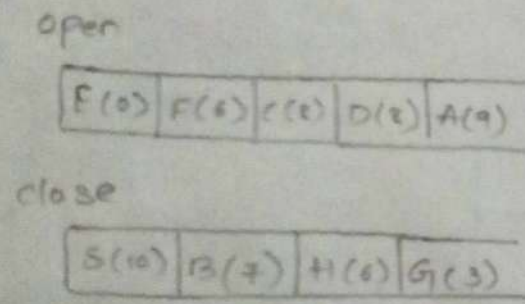 open
E(0) F(6) C(8) D(8) A(9)
close
S(10) B(7) H(6) G(3)